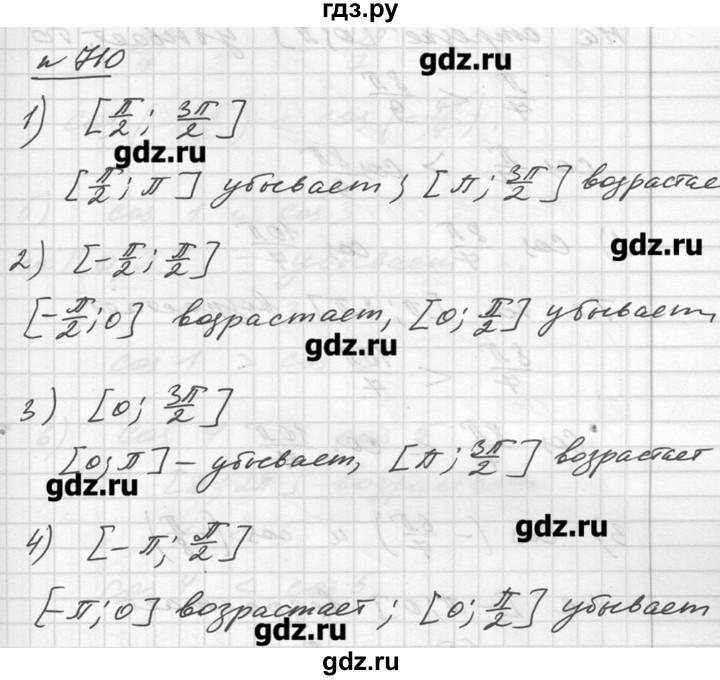 гдз.ру
n 710
gdz.ru
1) [π/2; 3π/2]
gdz.ru
[π/2; π] убывает; [π; 3π/2] возрастае
2) [-π/2; π/2]
gdz.ru
[-π/2; 0] возрастает, [0; π/2] убывает,
gdz.ru
3) [0; 3π/2]
[0; π] – убывает, [π; 3π/2] возрастает
gdz.ru
gdz.ru
4) [-π; π/2]
[-π; 0] возрастает; [0; π/2] убывает
gdz.ru
gdz.ru